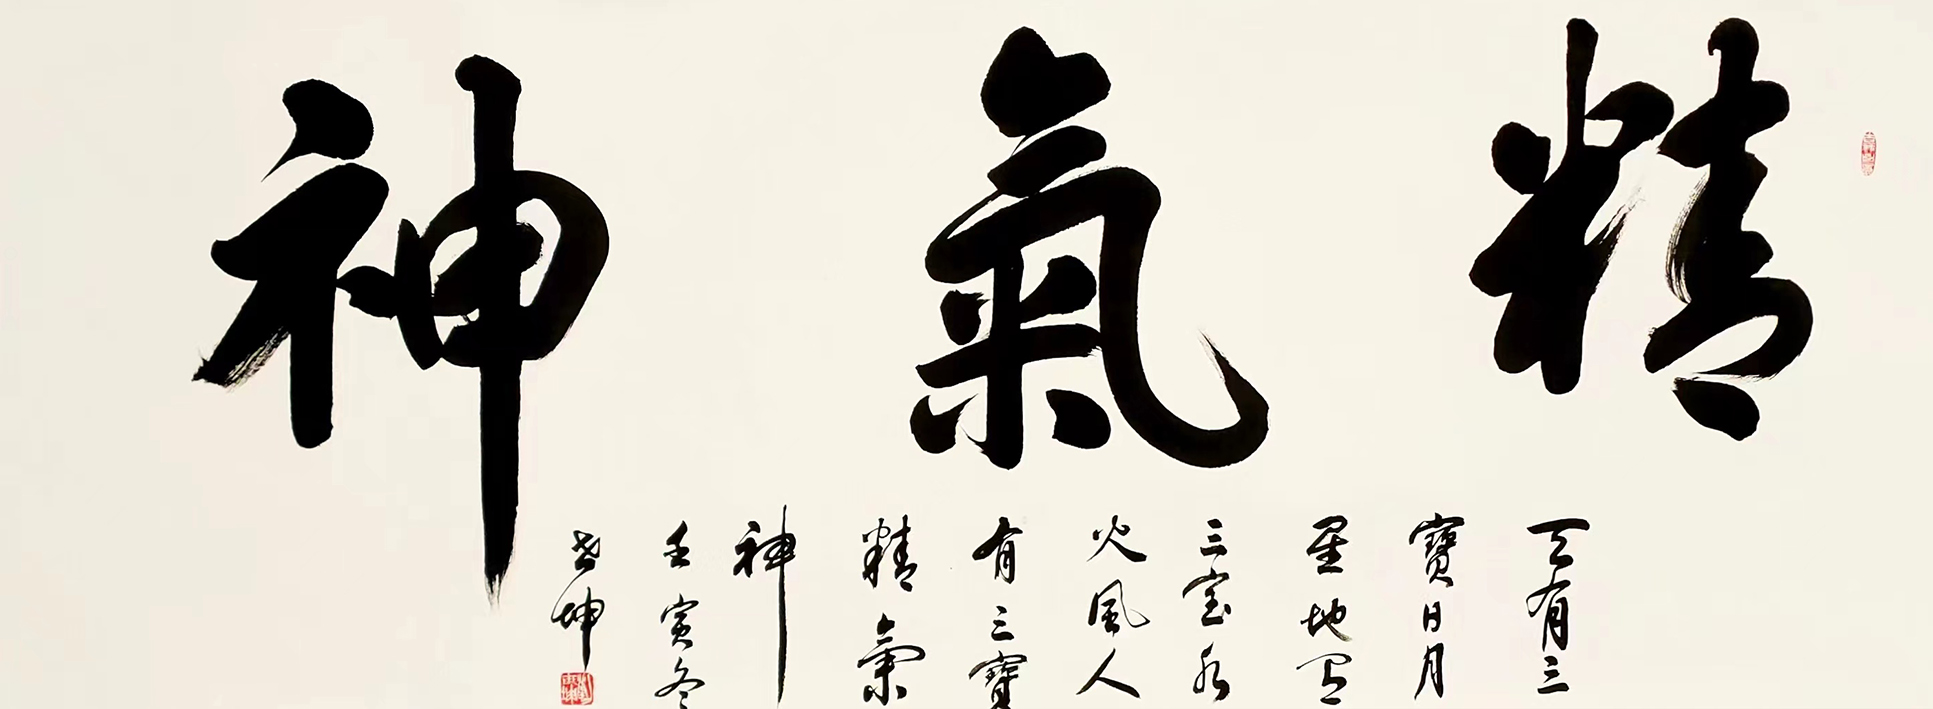 精氣神
天有三
寶日月
星地有
三宝水
火風人
有三寶
精氣
神
壬寅冬
坤